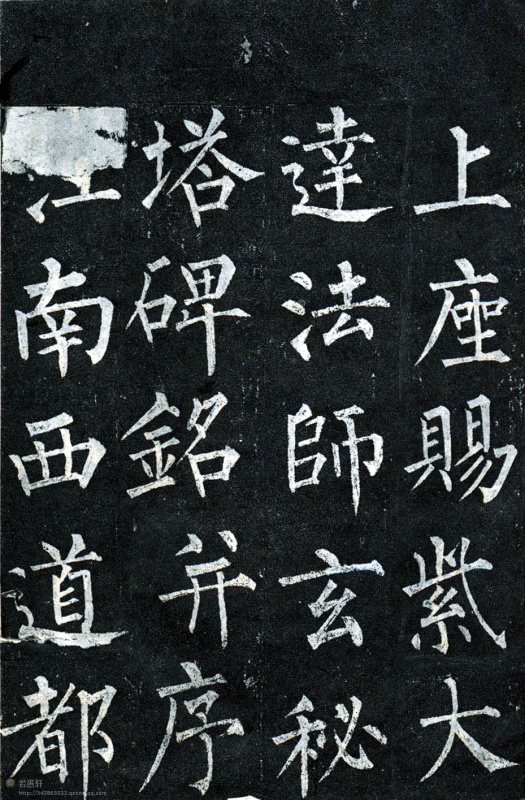 上座賜紫大
達法師玄秘
塔碑銘并序
江南西道都
若邑轩